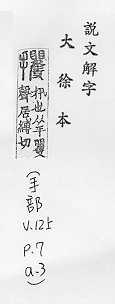 說文解字
大徐本
攫 扟也从手矍
聲居縛切
(手部
V.12上
P.7
a-3)